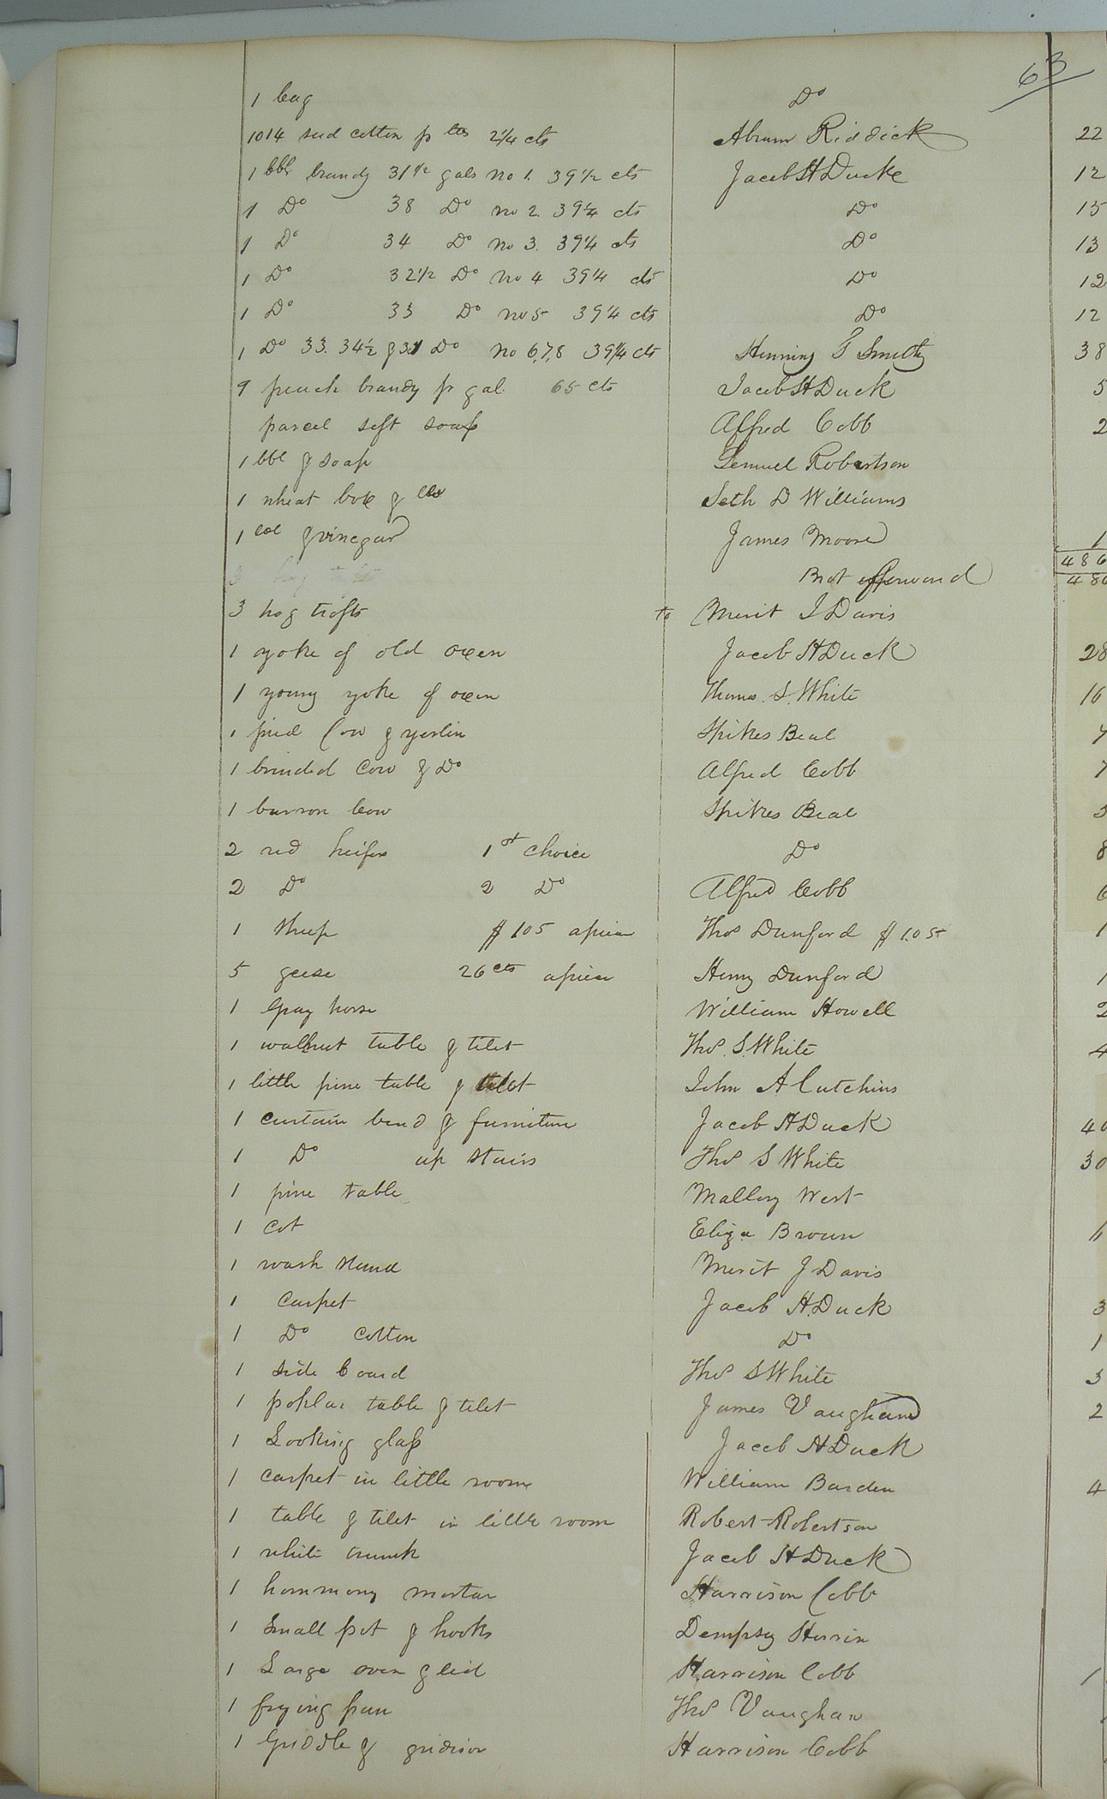 63
1 bag Do
1014 seed cotton p lbs 2¼ cts Abram Riddick 22
1 bbl brandy 31½ gals No 1. 39½ cts Jacob H Duck 12
1 Do 38 Do No 2. 39¼ cts Do 15
1 Do 34 Do No 3. 39¼ cts Do 13
1 Do 32½ Do No 4 39¼ cts Do 12
1 Do 33 Do No 5 39¼ cts Do 12
1 Do 33. 34½ & 31 Do No 6,7,8 39¼ cts Henning T Smith 38
9 peach brandy pr gal 65 cts Jacob H Duck 5
parcel soft soap Alfred Cobb 2
1 bbl & soap Lemuel Robertson
1 wheat box & Seth D Williams
1 & vinegar James Moore 1
486
Brot forward 486
3 hog trofts to Merit J Davis
1 yoke of old oxen Jacob H Duck 28
1 young yoke of oxen Thomas. S. White 16
1 pied Cow & yerlin Spikes Beal 7
1 brinded Cow & Do Alfred Cobb 7
1 barron Cow Spikes Beal 5
2 red heifers 1st choice Do 8
2 Do 2 Do Alfred Cobb 6
1 Sheep $1.05 apiece Thos Dunford $1.05 1
5 geese 26 cts apiece Henry Dunford 1
1 Gray horse William Howell 2
1 wallnut table & tilet Thos. S. White 4
1 little pine table & tilet John A Cutchins
1 curtain bead & furniture Jacob H Duck 40
1 Do up Stairs Thos S White 30
1 pine table Mallory West
1 cot Eliza Brown
1 wash stand Merit J Davis
1 Carpet Jacob H. Duck 3
1 Do Cotton Do 1
1 side board Thos S White 3
1 poplar table & tilet James Vaughan 2
1 Looking glass Jacob H Duck
1 carpet in little room William Barden 4
1 table & tilet in little room Robert Robertson
1 white trunk Jacob H Duck
1 hommony mortar Harrison Cobb
1 Small pot & hooks Dempsey Herrin
1 Large oven & leid Harrison Cobb 1
1 frying pan Thos Vaughan
1 Griddle & gridiron Harrison Cobb